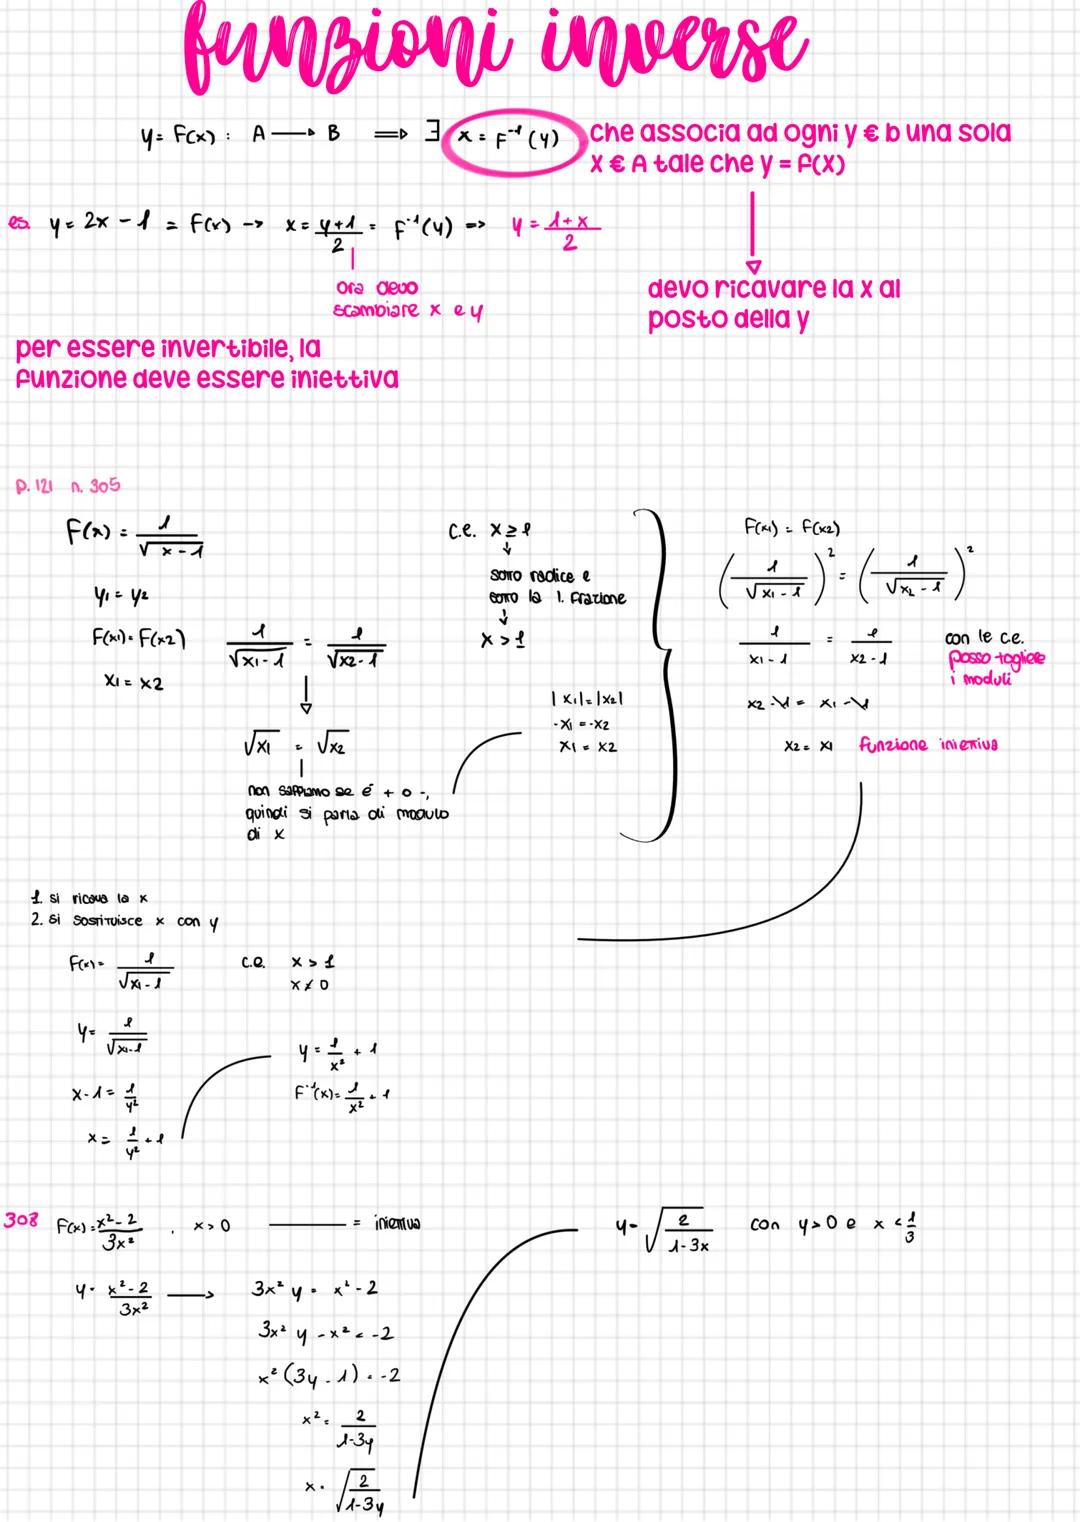 funzioni inverse
y = F(x) : A → B ⇒ ∃ x = F⁻¹(y) che associa ad ogni y € b una sola
x € A tale che y = f(X)
es. y = 2x - 1 = f(x) -> x = (y+1)/2 = F⁻¹(y) => y = (1+x)/2
ora devo
scambiare x e y
devo ricavare la x al
posto della y
per essere invertibile, la
funzione deve essere iniettiva
p. 121 n. 305
F(x) = 1/√(x-1)
y₁ = y₂
F(x1) = F(x2)
x1 = x2
1/√(x1-1) = 1/√(x2-1)
√x1 = √x2
non sappiamo se é + o -,
quindi si parla di modulo
di x
c.e. x ≥ 1
sotto radice e
sotto la l. frazione
x > 1
|x1| = |x2|
-x1 = -x2
x1 = x2
F(x1) = F(x2)
(1/√(x1-1))² = (1/√(x2-1))²
1/(x1-1) = 1/(x2-1)
con le c.e.
posso togliere
i moduli
x2 - 1 = x1 - 1
x2 = x1 funzione iniettiva
1. si ricava la x
2. si sostituisce x con y
F(x) = 1/√(x1-1) c.e. x > 1
x ≠ 0
y = 1/√(x1-1)
x - 1 = 1/y²
x = 1/y² + 1
y = 1/x² + 1
F⁻¹(x) = 1/x² + 1
308 F(x) = (x²-2)/3x² , x > 0 = iniettiva
y = (x²-2)/3x² → 3x² y = x² - 2
3x² y - x² = -2
x² (3y - 1) = -2
x² = 2/(1-3y)
x = √(2/(1-3y))
y = √(2/(1-3x)) con y > 0 e x < 1/3